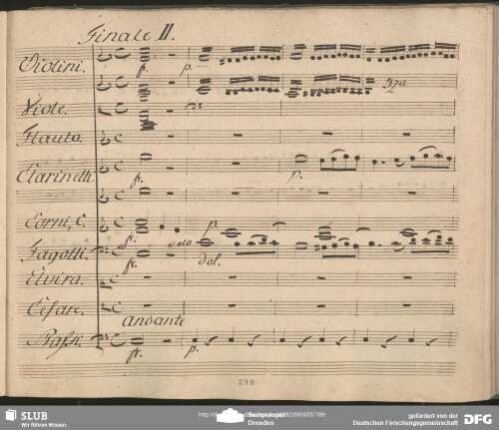 Finale II.
Violini.
f.
p.
Viole.
Flauto.
Clarinetti
f.
p.
Corni, C.
f.
Solo
p
Fagotti.
f.
dol.
Elvira.
Cesare.
Andante
Basso.
f.
p.
SLUB
Wir führen Wissen.
Dresden
gefördert von der
Deutschen Forschungsgemeinschaft
DFG